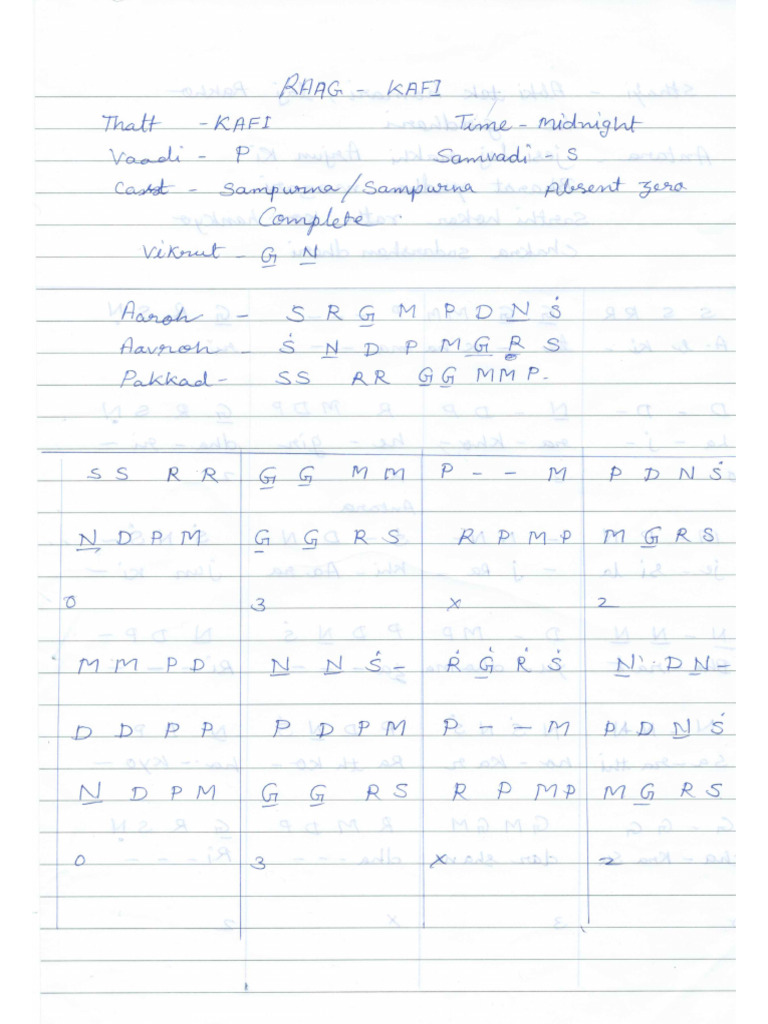 RAAG - KAFI
Thatt - KAFI Time - Midnight
Vaadi - P Samvadi - S
Cast - Sampurna/Sampurna Absent Zero
Complete
Vikrut - G̲ N̲
Aaroh - S R G̲ M P D N̲ Ṡ
Aavroh - Ṡ N̲ D P M G̲ R S
Pakkad - SS RR G̲G̲ MMP.
S S R R G̲ G̲ M M P - - M P D N Ṡ
N̲ D P M G̲ G̲ R S R P M P M G̲ R S
0 3 x 2
M M P D N̲ N̲ Ṡ - Ṙ Ġ̲ Ṙ Ṡ N̲ D N̲ -
D D P P P D P M P - - M P D N̲ Ṡ
N̲ D P M G̲ G̲ R S R P M P M G̲ R S
0 3 x 2